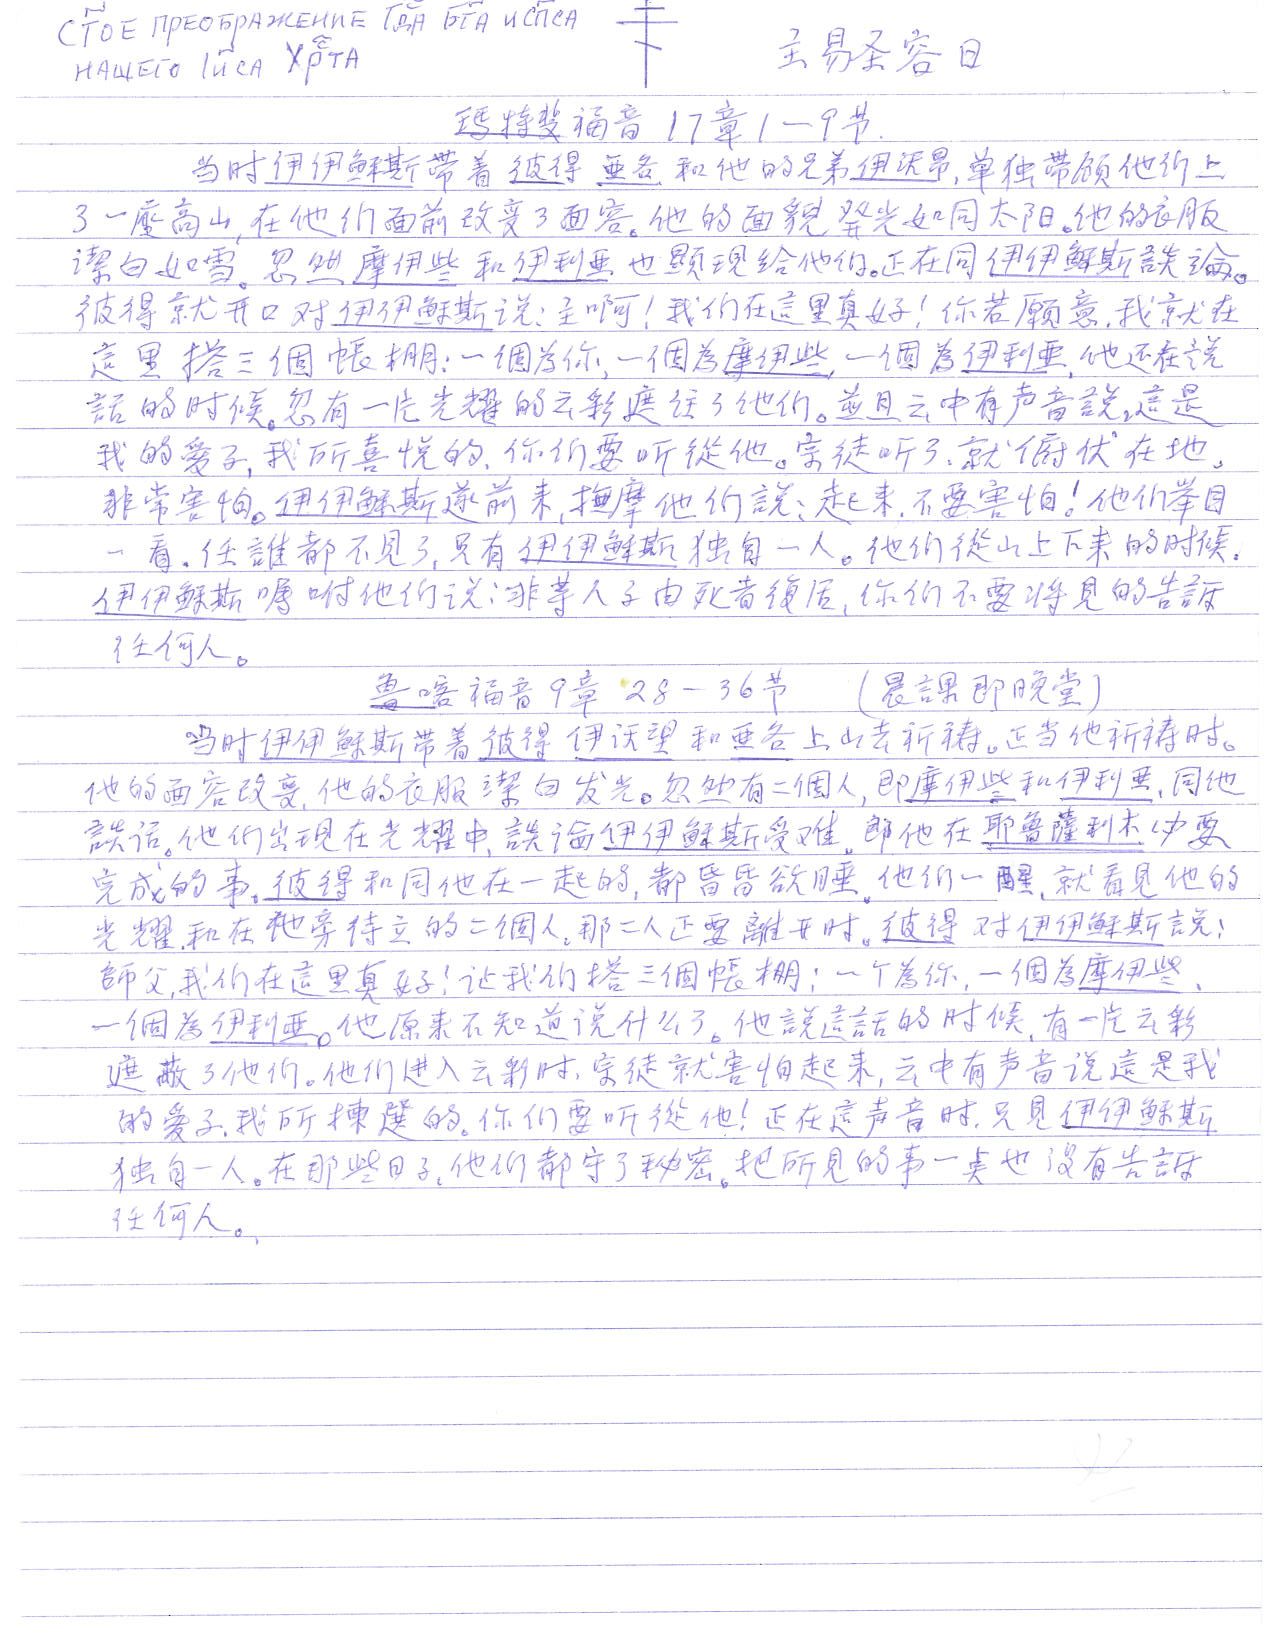 СТОЕ ПРЕОБРАЖЕНИЕ ГДА БГА И СПСА
НАШЕГО ІИСА ХРТА
主易圣容日
瑪特斐福音 17章1—9节.
当时伊伊穌斯带着彼得 亜各 和他的兄弟伊沃昂,单独带领他们上
了一座高山,在他们面前改变了面容。他的面貌發光如同太阳。他的衣服
潔白如雪。忽然摩伊些和伊利亜也顯現給他们。正在同伊伊穌斯談論。
彼得就开口对伊伊穌斯说:主啊!我们在這里真好!你若願意,我就在
這里搭三個帳棚:一個為你,一個為摩伊些,一個為伊利亜,他还在說
話的时候。忽有一片光耀的云彩遮住了他们。並且云中有声音說,這是
我的愛子,我所喜悦的,你们要听從他。宗徒听了,就俯伏在地。
非常害怕。伊伊穌斯遂前来,撫摩他们說:起来,不要害怕!他们举目
一看,任誰都不見了,只有伊伊穌斯独自一人。他们從山上下来的时候,
伊伊穌斯嘱咐他们说:非等人子由死者復活,你们不要将見的告訴
任何人。
魯喀福音9章 28—36节 (晨課即晚堂)
当时伊伊穌斯带着彼得 伊沃望 和亜各上山去祈祷。正当他祈祷时。
他的面容改变,他的衣服潔白发光。忽然有二個人,即摩伊些和伊利亜,同他
談话。他们出現在光耀中,談論伊伊穌斯受难。即他在耶魯薩利木必要
完成的事。彼得和同他在一起的,都昏昏欲睡。他们一醒,就看見他的
光耀,和在他旁待立的二個人,那二人正要離开时。彼得对伊伊穌斯說:
師父,我们在這里真好!让我们搭三個帳棚:一个為你,一個為摩伊些,
一個為伊利亜。他原来不知道说什么了。他說這話的时候,有一片云彩
遮蔽了他们。他们进入云彩时,宗徒就害怕起来,云中有声音说這是我
的愛子,我所揀選的。你们要听從他!正在這声音时,只見伊伊穌斯
独自一人。在那些日子,他们都守了秘密。把所見的事一點也没有告訴
任何人。